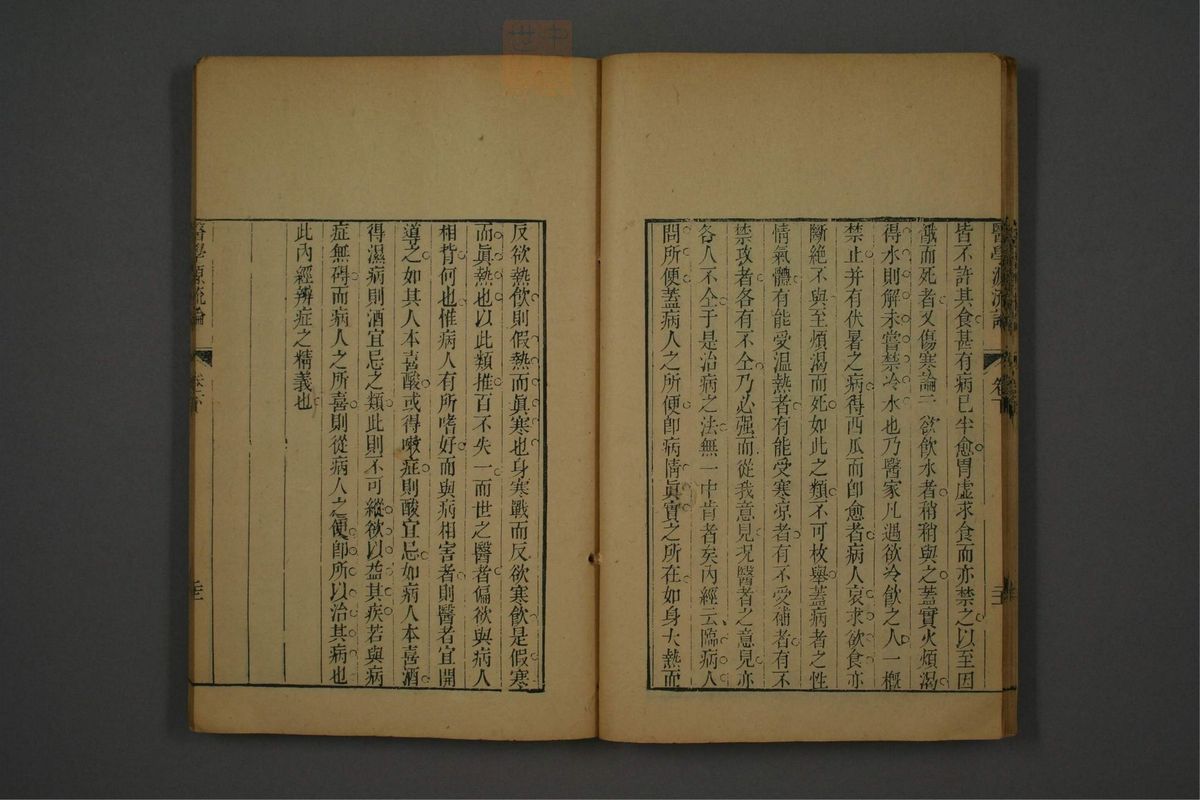 皆不許其食甚有病已半愈胃虛求食而亦禁之以至因
餓而死者又傷寒論云欲飲水者稍稍與之蓋實火煩渴
得水則解未嘗禁冷水也乃醫家凡遇欲冷飲之人一概
禁止并有伏暑之病得西瓜而卽愈者病人哀求欲食亦
斷絕不與至煩渴而死如此之類不可枚舉蓋病者之性
情氣體有能受温熱者有能受寒涼者有不受補者有不
禁攻者各有不仝乃必强而從我意見况醫者之意見亦
各人不仝于是治病之法無一中肯者矣內經云臨病人
問所便蓋病人之所便卽病情眞實之所在如身大熱而
反欲熱飲則假熱而眞寒也身寒戰而反欲寒飲是假寒
而眞熱也以此類推百不失一而世之醫者偏欲與病人
相背何也惟病人有所嗜好而與病相害者則醫者宜開
導之如其人本喜酸或得嗽症則酸宜忌如病人本喜酒
得濕病則酒宜忌之類此則不可縱欲以益其疾若與病
症無碍而病人之所喜則從病人之便卽所以治其病也
此內經辨症之精義也
醫學源流論 卷下